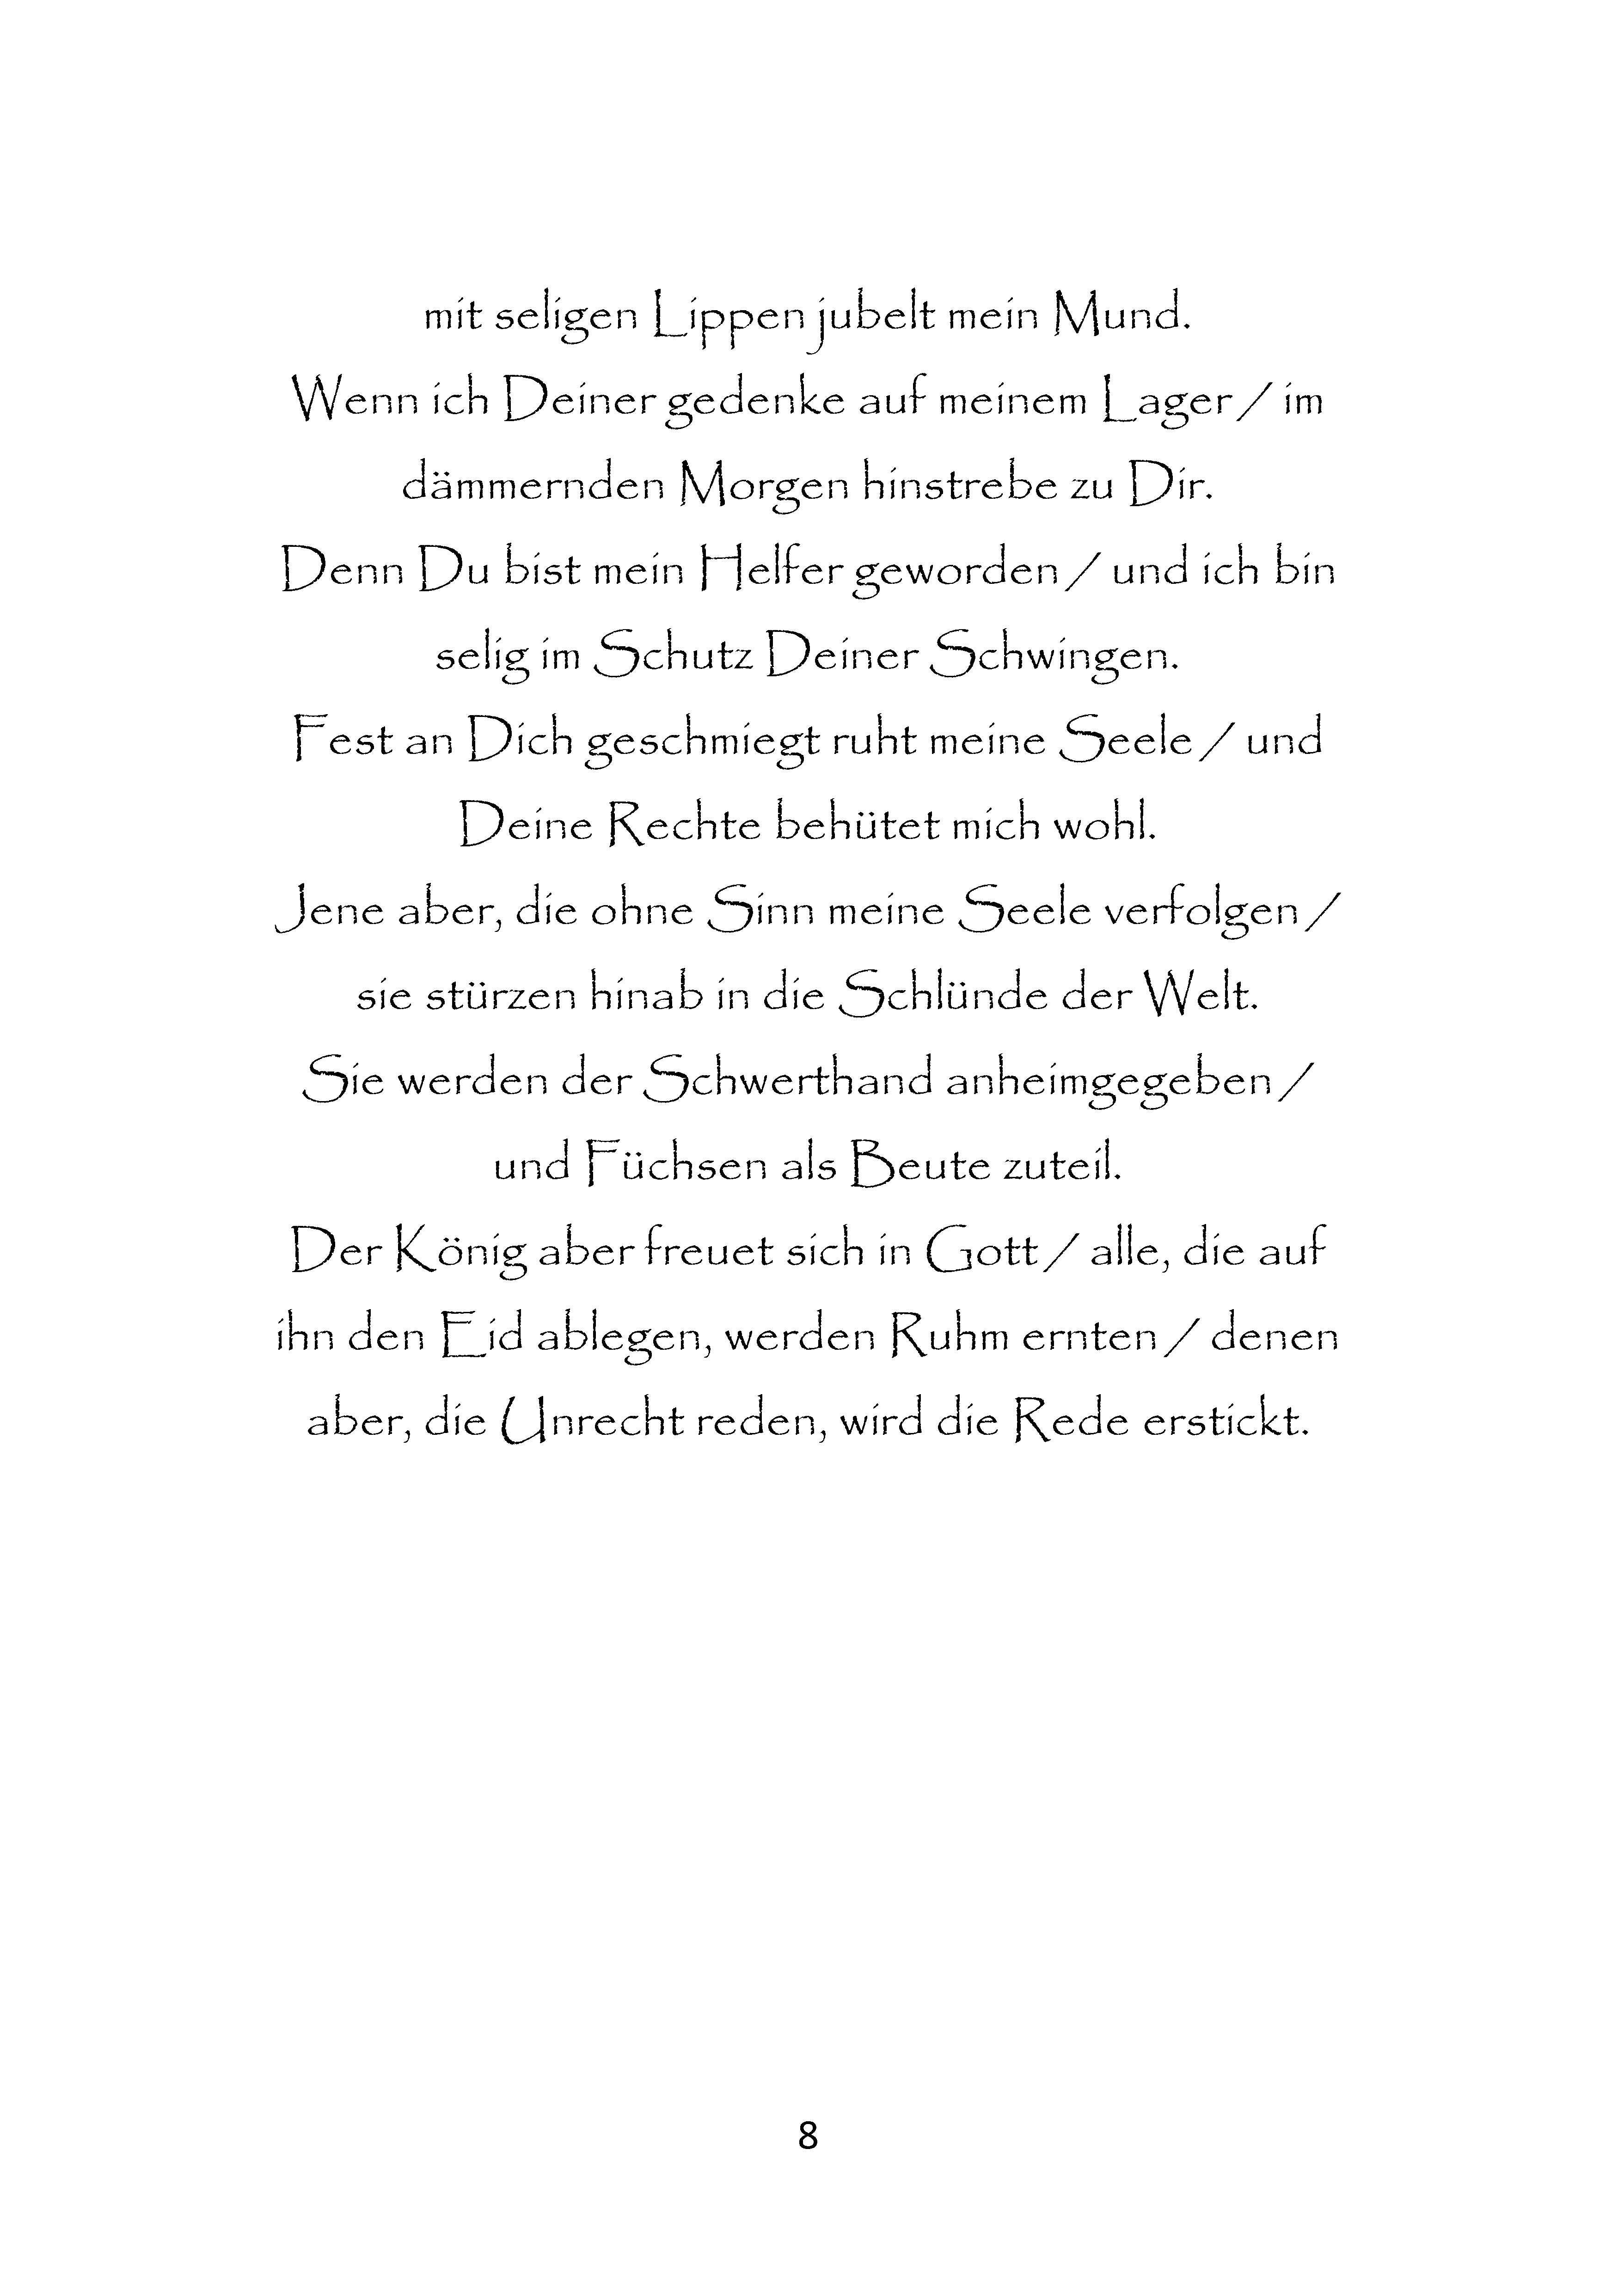 mit seligen Lippen jubelt mein Mund.
Wenn ich Deiner gedenke auf meinem Lager / im
dämmernden Morgen hinstrebe zu Dir.
Denn Du bist mein Helfer geworden / und ich bin
selig im Schutz Deiner Schwingen.
Fest an Dich geschmiegt ruht meine Seele / und
Deine Rechte behütet mich wohl.
Jene aber, die ohne Sinn meine Seele verfolgen /
sie stürzen hinab in die Schlünde der Welt.
Sie werden der Schwerthand anheimgegeben /
und Füchsen als Beute zuteil.
Der König aber freuet sich in Gott / alle, die auf
ihn den Eid ablegen, werden Ruhm ernten / denen
aber, die Unrecht reden, wird die Rede erstickt.
8